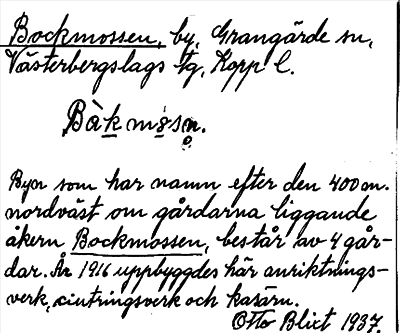 Bockmossen, by, Grangärde sn,
Västerbergslags tg, Kopp l.
Bàkmòsn.
Byn som har namn efter den 400 m.
nordväst om gårdarna liggande
åkern Bockmossen, består av 4 går-
dar. År 1916 uppbyggdes här anriktnings-
verk, sintringsverk och kasärn.
Otto Blixt 1937.